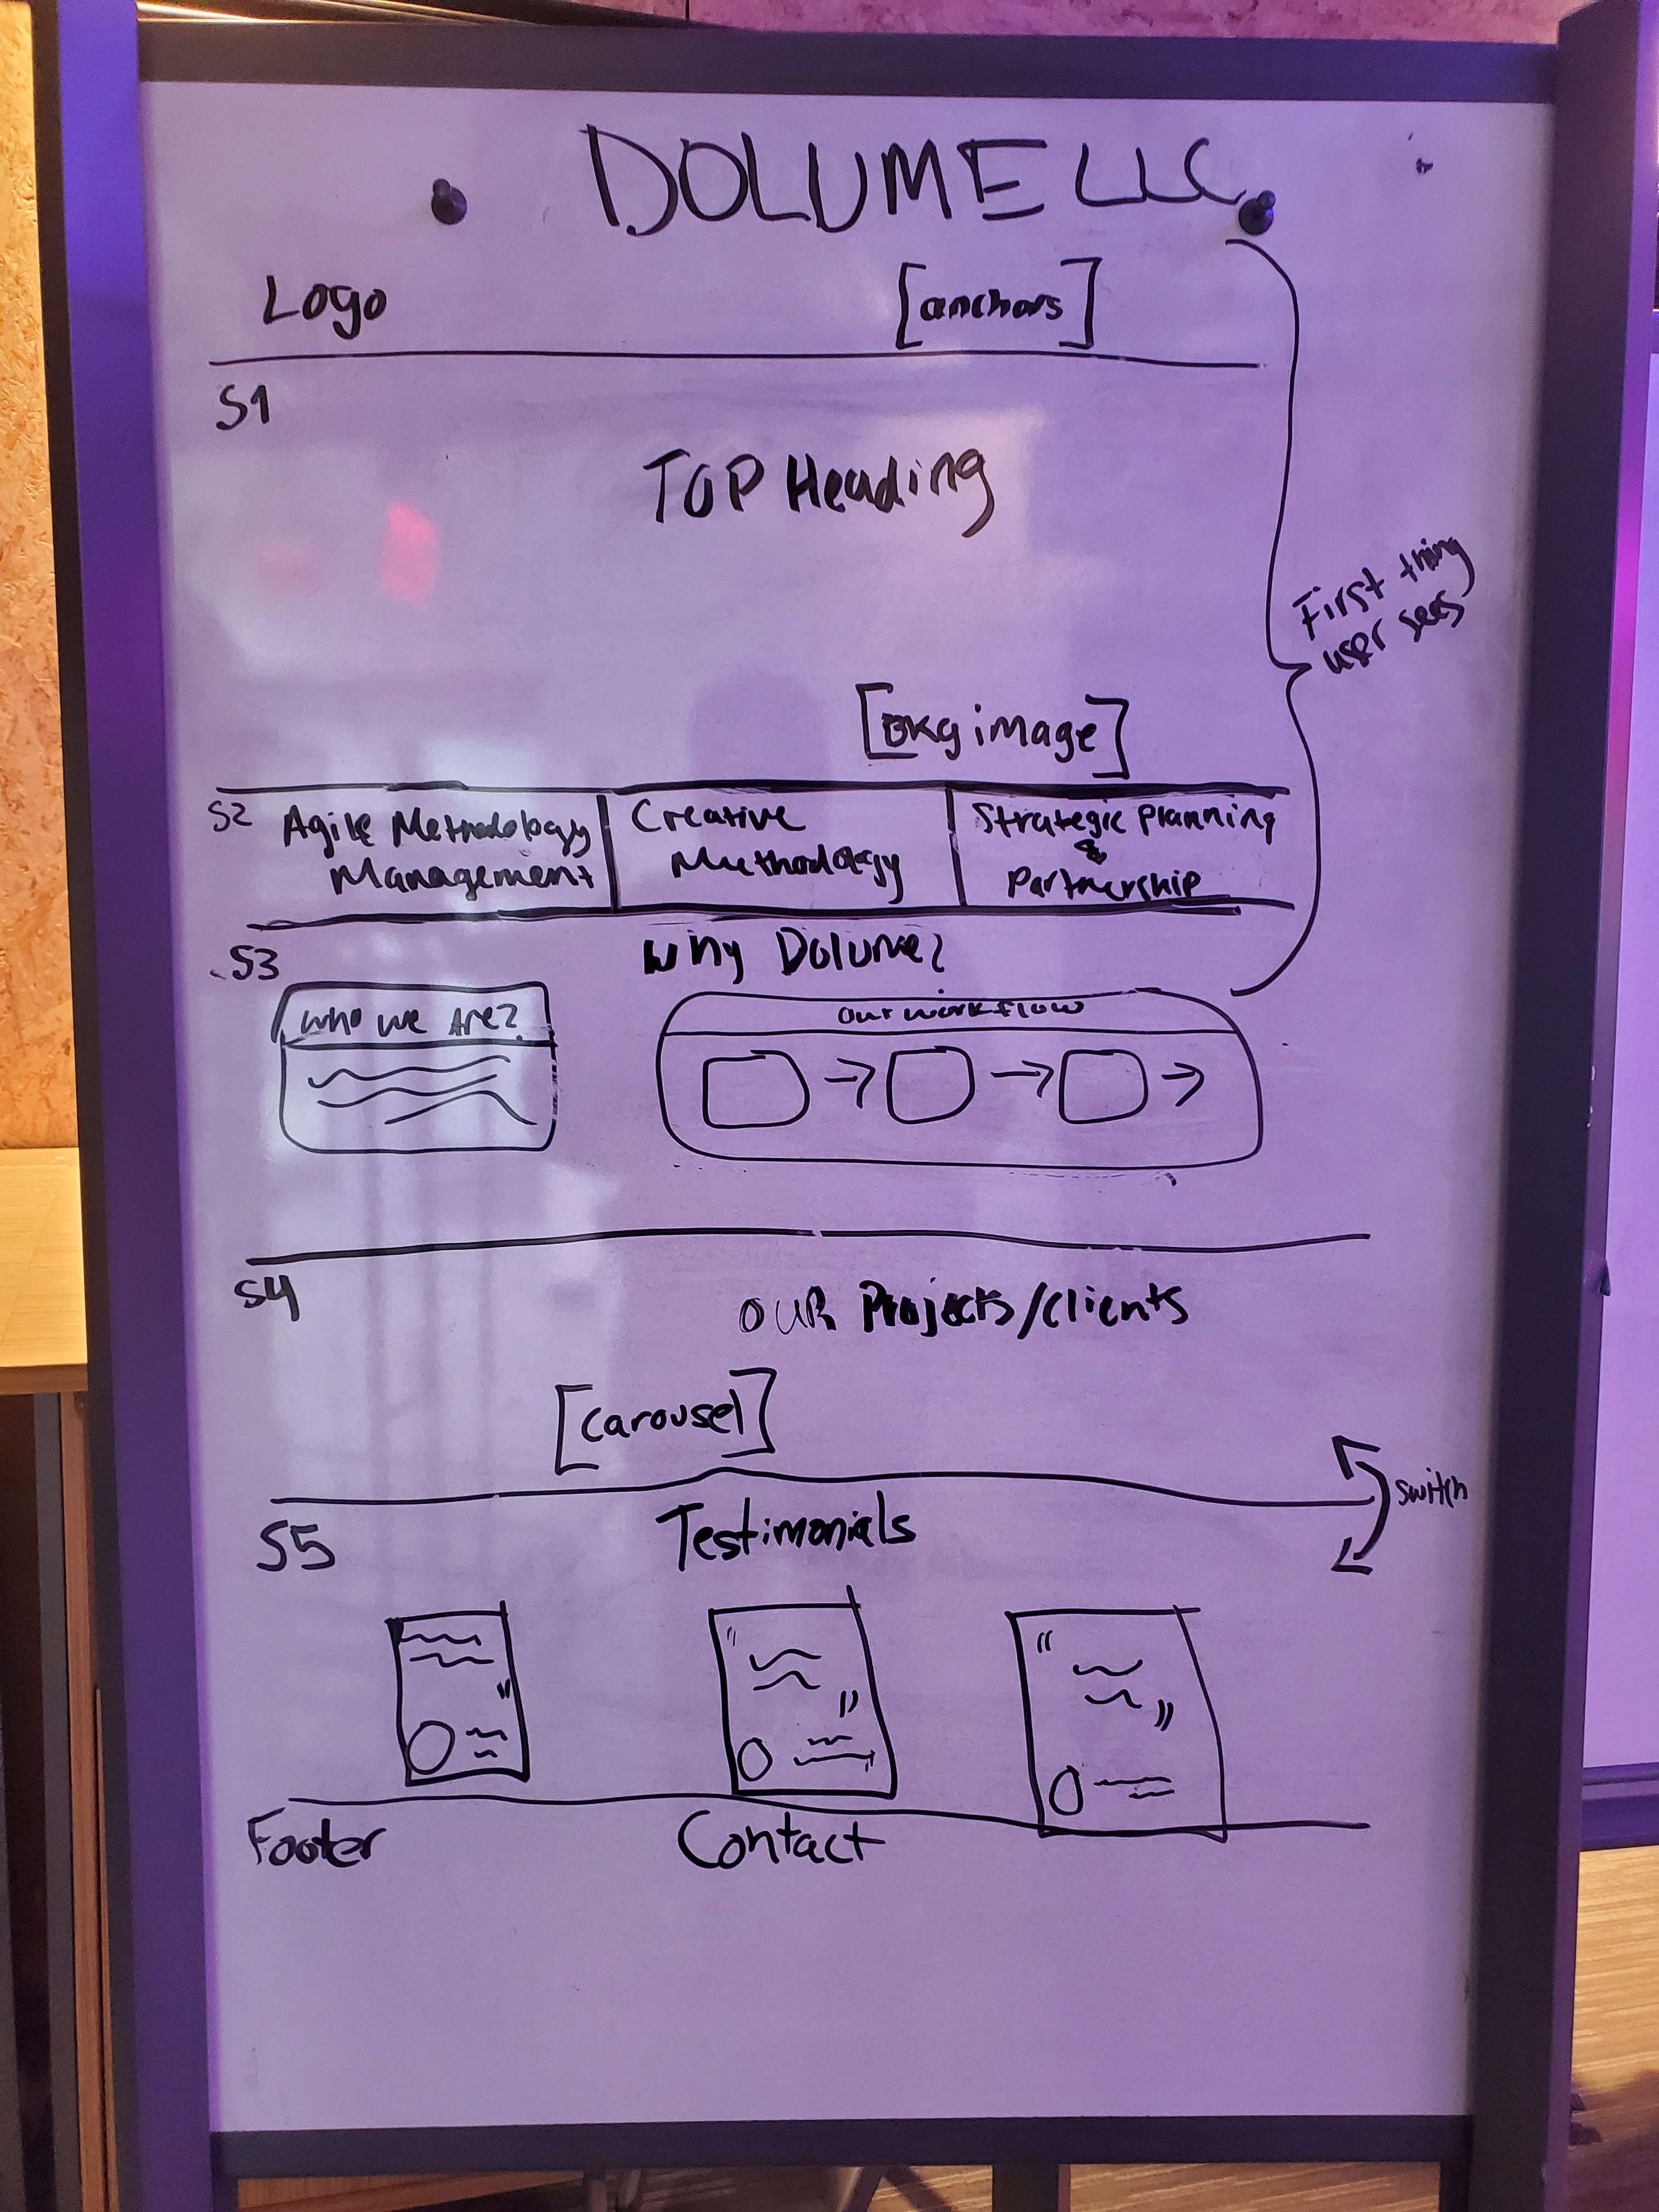 DOLUME LLC
Logo
[anchors]
S1
TOP Heading
First thing
user sees
[BKg image]
S2
Agile Methodology
Management
Creative
Methodology
Strategic Planning
&
Partnership
S3
Why Dolume?
Who we Are?
Our workflow
S4
OUR Projects/clients
[carousel]
switch
S5
Testimonials
Footer
Contact